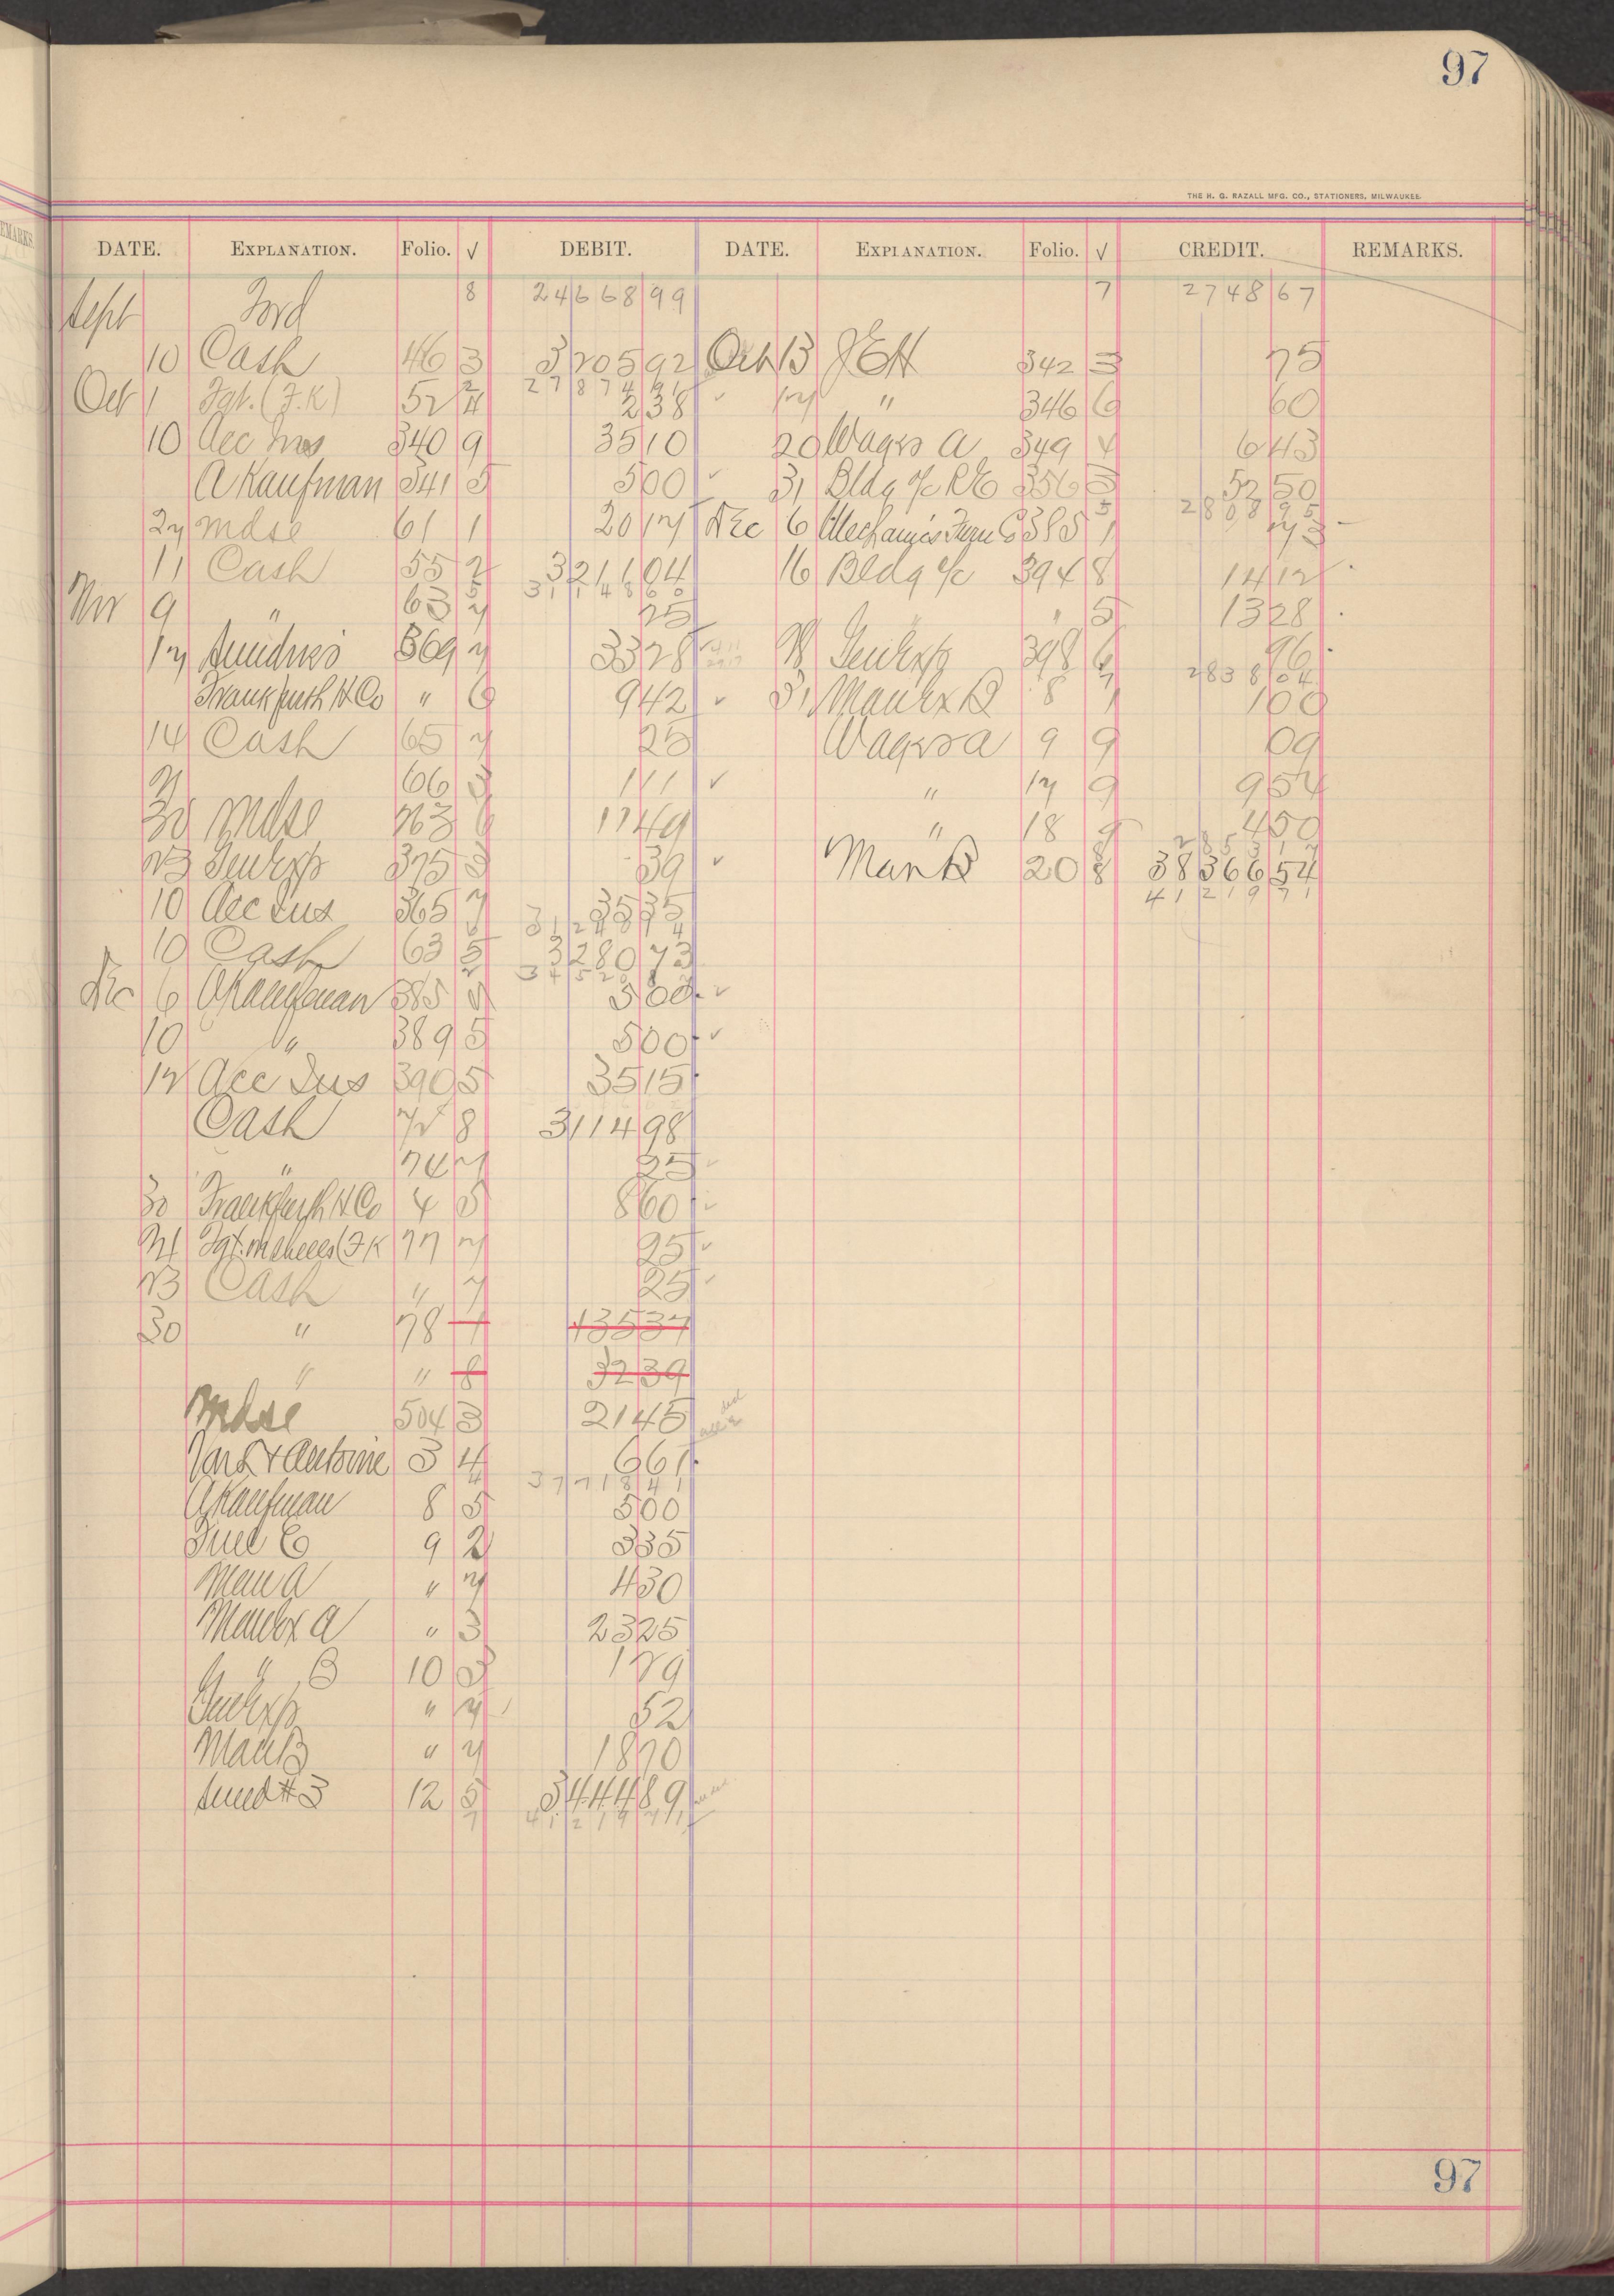 97
THE H. G. RAZALL MFG. CO., STATIONERS, MILWAUKEE.
DATE. EXPLANATION. Folio. √ DEBIT. DATE. EXPLANATION. Folio. √ CREDIT. REMARKS.
Sept Ford 8 24668 99 7 2748 67
10 Cash 46 3 3205 92 Oct 13 J E H 342 3 75
27874 91
Oct 1 Fgt. (F.K) 52 4 2 38 ✓ 14 " 346 6 60
10 Acc Ins 340 9 35 10 20 Wages A 349 4 6 43
A Kaufman 341 5 5 00 ✓ 31 Bldg a/c R E 356 3 52 50
2808 95
27 Mdse 61 1 20 17 Dec 6 Mechanics Furn Co 385 1 73
11 Cash 55 2 3211 04 16 Bldg a/c 394 8 14 12
31148 60
Nov 9 " 63 7 25 " 5 13 28
17 Sundries 369 7 33 28 Gen Exp 398 6 96
2838 04
Frankfurth H Co " 6 9 42 ✓ 31 Man Ex B 8 1 1 00
14 Cash 65 7 25 Wages A 9 9 09
66 3 1 11 ✓ " 17 9 9 54
30 Mdse 763 6 17 49 " 18 9 4 50
23 Gen Exp 375 3 39 ✓ Man B 20 8 38366 54
41219 71
10 Acc Ins 365 7 35 35
31248 74
10 Cash 63 5 3280 73
Dec 6 A Kaufman 385 5 5 00 ✓
10 " 389 5 5 00 ✓
12 Acc Ins 390 5 35 15
Cash 72 8 3114 98
" 74 7 25
30 Frankfurth H Co 4 5 8 60
Fgt. (F K 77 7 25 ✓
23 Cash " 7 25
30 " 78 1 135 37
" " 8 32 39
Mdse 504 3 21 45
& Antoine 3 4 6 61
37718 41
A Kaufman 8 5 5 00
Fuel Co 9 2 3 35
Man A " 7 4 30
Man Ex A " 3 23 25
" B 10 3 1 79
Gen Exp " 7 52
Man B " 7 18 70
Sund # 3 12 5 3444 89
41219 71
97